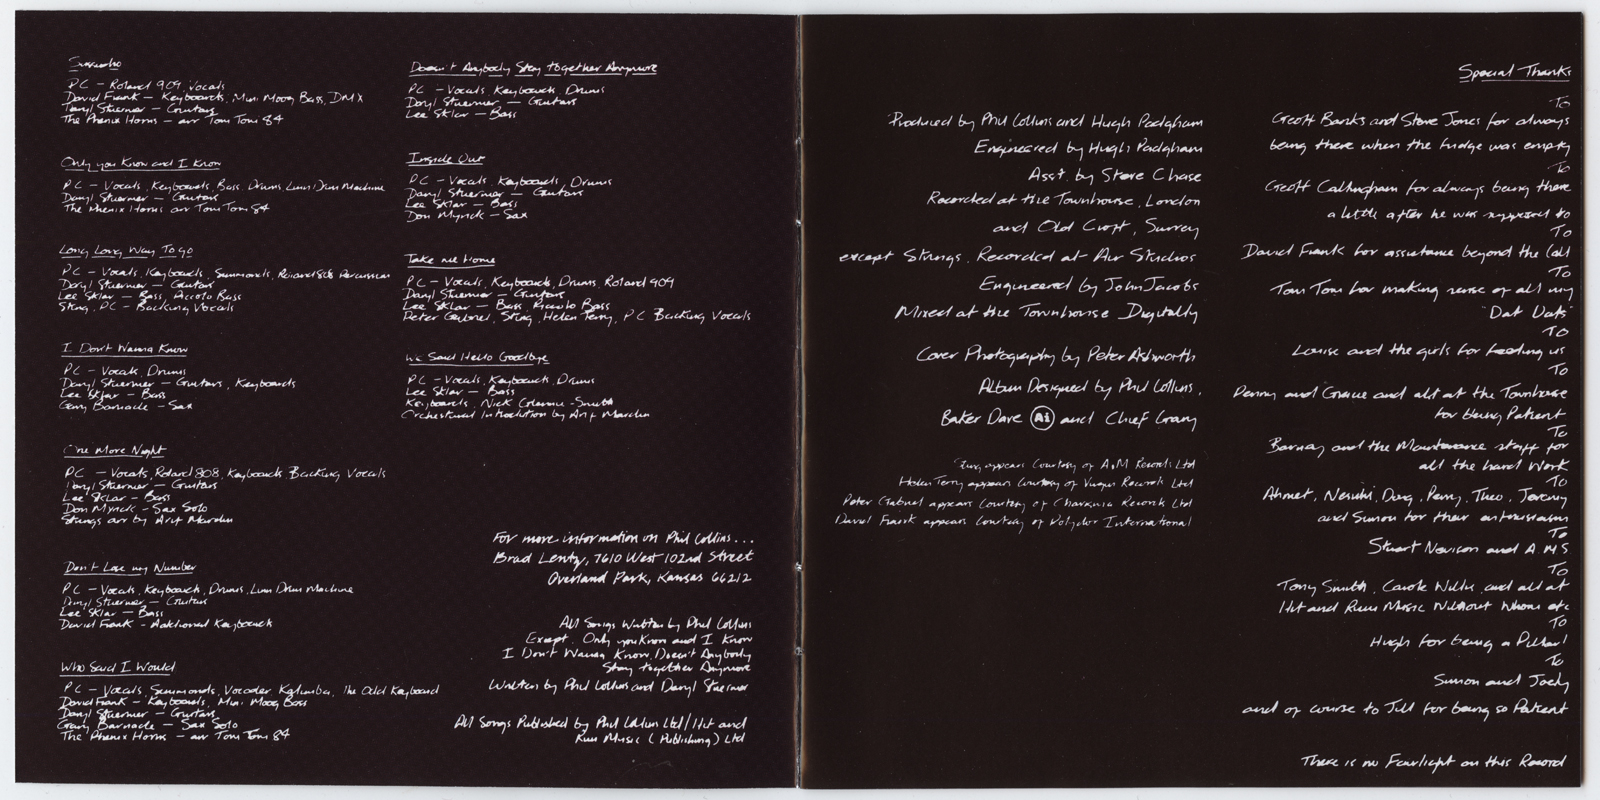 Sussudio
PC – Roland 909, Vocals
David Frank – Keyboards, Mini Moog Bass, DMX
Daryl Stuermer – Guitars
The Phenix Horns – arr Tom Tom 84
Only you Know and I Know
PC – Vocals, Keyboards, Bass, Drums, Linn Drum Machine
Daryl Stuermer – Guitars
The Phenix Horns arr Tom Tom 84
Long Long Way To go
PC – Vocals, Keyboards, Simmonds, Roland 808 Percussion
Daryl Stuermer – Guitars
Lee Sklar – Bass, Piccolo Bass
Sting, PC – Backing Vocals
I Don't Wanna Know
PC – Vocals, Drums
Daryl Stuermer – Guitars, Keyboards
Lee Sklar – Bass
Gary Barnacle – Sax
One More Night
PC – Vocals, Roland 808, Keyboards Backing Vocals
Daryl Stuermer – Guitars
Lee Sklar – Bass
Don Myrick – Sax Solo
Strings arr by Arif Mardin
Don't Lose my Number
PC – Vocals, Keyboards, Drums, Linn Drum Machine
Daryl Stuermer – Guitars
Lee Sklar – Bass
David Frank – Additional Keyboards
Who Said I Would
PC – Vocals, Simmonds, Vocoder, Kalimba, the Odd Keyboard
David Frank – Keyboards, Mini Moog Bass
Daryl Stuermer – Guitars
Gary Barnacle – Sax Solo
The Phenix Horns – arr Tom Tom 84
Doesn't Anybody Stay together Anymore
PC – Vocals, Keyboards, Drums
Daryl Stuermer – Guitars
Lee Sklar – Bass
Inside Out
PC – Vocals, Keyboards, Drums
Daryl Stuermer – Guitars
Lee Sklar – Bass
Don Myrick – Sax
Take me Home
PC – Vocals, Keyboards, Drums, Roland 909
Daryl Stuermer – Guitars
Lee Sklar – Bass, Piccolo Bass
Peter Gabriel, Sting, Helen Terry, PC Backing Vocals
We Said Hello Goodbye
PC – Vocals, Keyboards, Drums
Lee Sklar – Bass
Keyboards, Nick Glennie-Smith
Orchestral Introduction by Arif Mardin
For more information on Phil Collins...
Brad Lentz, 7610 West 102nd Street
Overland Park, Kansas 66212
All Songs Written by Phil Collins
Except, Only you Know and I Know
I Don't Wanna Know, Doesn't Anybody
Stay together Anymore
Written by Phil Collins and Daryl Stuermer
All Songs Published by Phil Collins Ltd/Hit and
Run Music (Publishing) Ltd
Produced by Phil Collins and Hugh Padgham
Engineered by Hugh Padgham
Asst. by Steve Chase
Recorded at the Townhouse, London
and Old Croft, Surrey
except Strings, Recorded at Air Studios
Engineered by John Jacobs
Mixed at the Townhouse Digitally
Cover Photography by Peter Ashworth
Album Designed by Phil Collins,
Baker Dave Ai and Chief Grany
Sting appears Courtesy of A&M Records Ltd
Helen Terry appears Courtesy of Virgin Records Ltd
Peter Gabriel appears Courtesy of Charisma Records Ltd
David Frank appears Courtesy of Polydor International
Special Thanks
To
Geoff Banks and Steve Jones for always
being there when the fridge was empty
To
Geoff Callingham for always being there
a little after he was supposed to
To
David Frank for assistance beyond the Call
To
Tom Tom for making sense of all my
"Dat Dats"
To
Louise and the girls for feeding us
To
Penny and Gracie and all at the Townhouse
for being Patient
To
Barnay and the Maintenance staff for
all the hard Work
To
Ahmet, Nesuhi, Doug, Perry, Theo, Jeremy
and Simon for their enthusiasm
To
Stuart Nevison and AMS
To
Tony Smith, Carole Willis, and all at
Hit and Run Music Without Whom etc
To
Hugh for being a Pillow!
To
Simon and Joely
and of course to Jill for being so Patient
There is no Fairlight on this Record